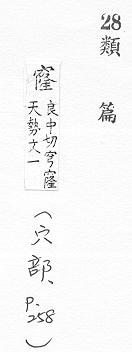 28 類篇
窿 良中切穹窿
天勢文一
（穴部、P.258）